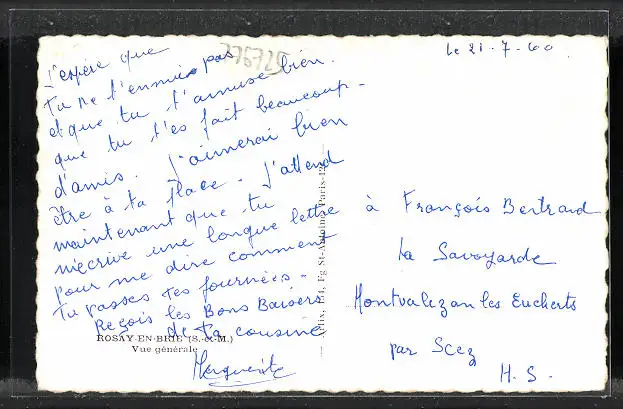 le 21-7-60
776725
J'espère que
tu ne t'ennuies pas
et que tu t'amuse bien.
que tu t'es fait beaucoup
d'amis. J'aimerai bien
être à ta place. J'attend
maintenant que tu
m'écrive une longue lettre
pour me dire comment
tu passes tes journées.
Reçois les Bons Baisers
de ta cousine
Marguerite
à François Bertrand
La Savoyarde
Montvalezan les Eucherts
par Scez
H.S.
ROSAY-EN-BRIE (S.-&-M.)
Vue générale
184, Fg St-Antoine, Paris-12